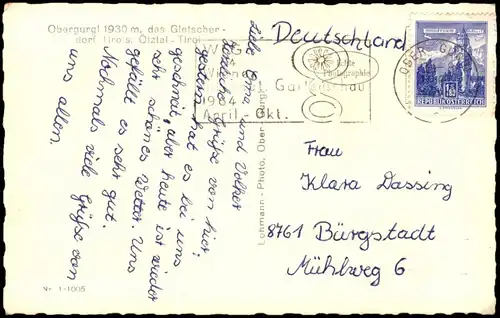 Obergurgl 1930 m, das Gletscher-
dorf Tirols, Ötztal-Tirol
Deutschland
WIG
84
Wiener
Int. Gartenschau
1984
April - Okt.
Echte
Photographie
REPUBLIK ÖSTERREICH
Liebe Oma und Volker
Herzliche Grüße von hier.
Gestern hat es bei uns
geschneit, aber heute ist wieder
sehr schönes Wetter. Uns
gefällt es sehr gut.
Nochmals viele Grüße von
uns allen.
Lohmann - Photo, Obergurgl
Frau
Klara Dassing
8761 Bürgstadt
Mühlweg 6
Nr. 1-1005